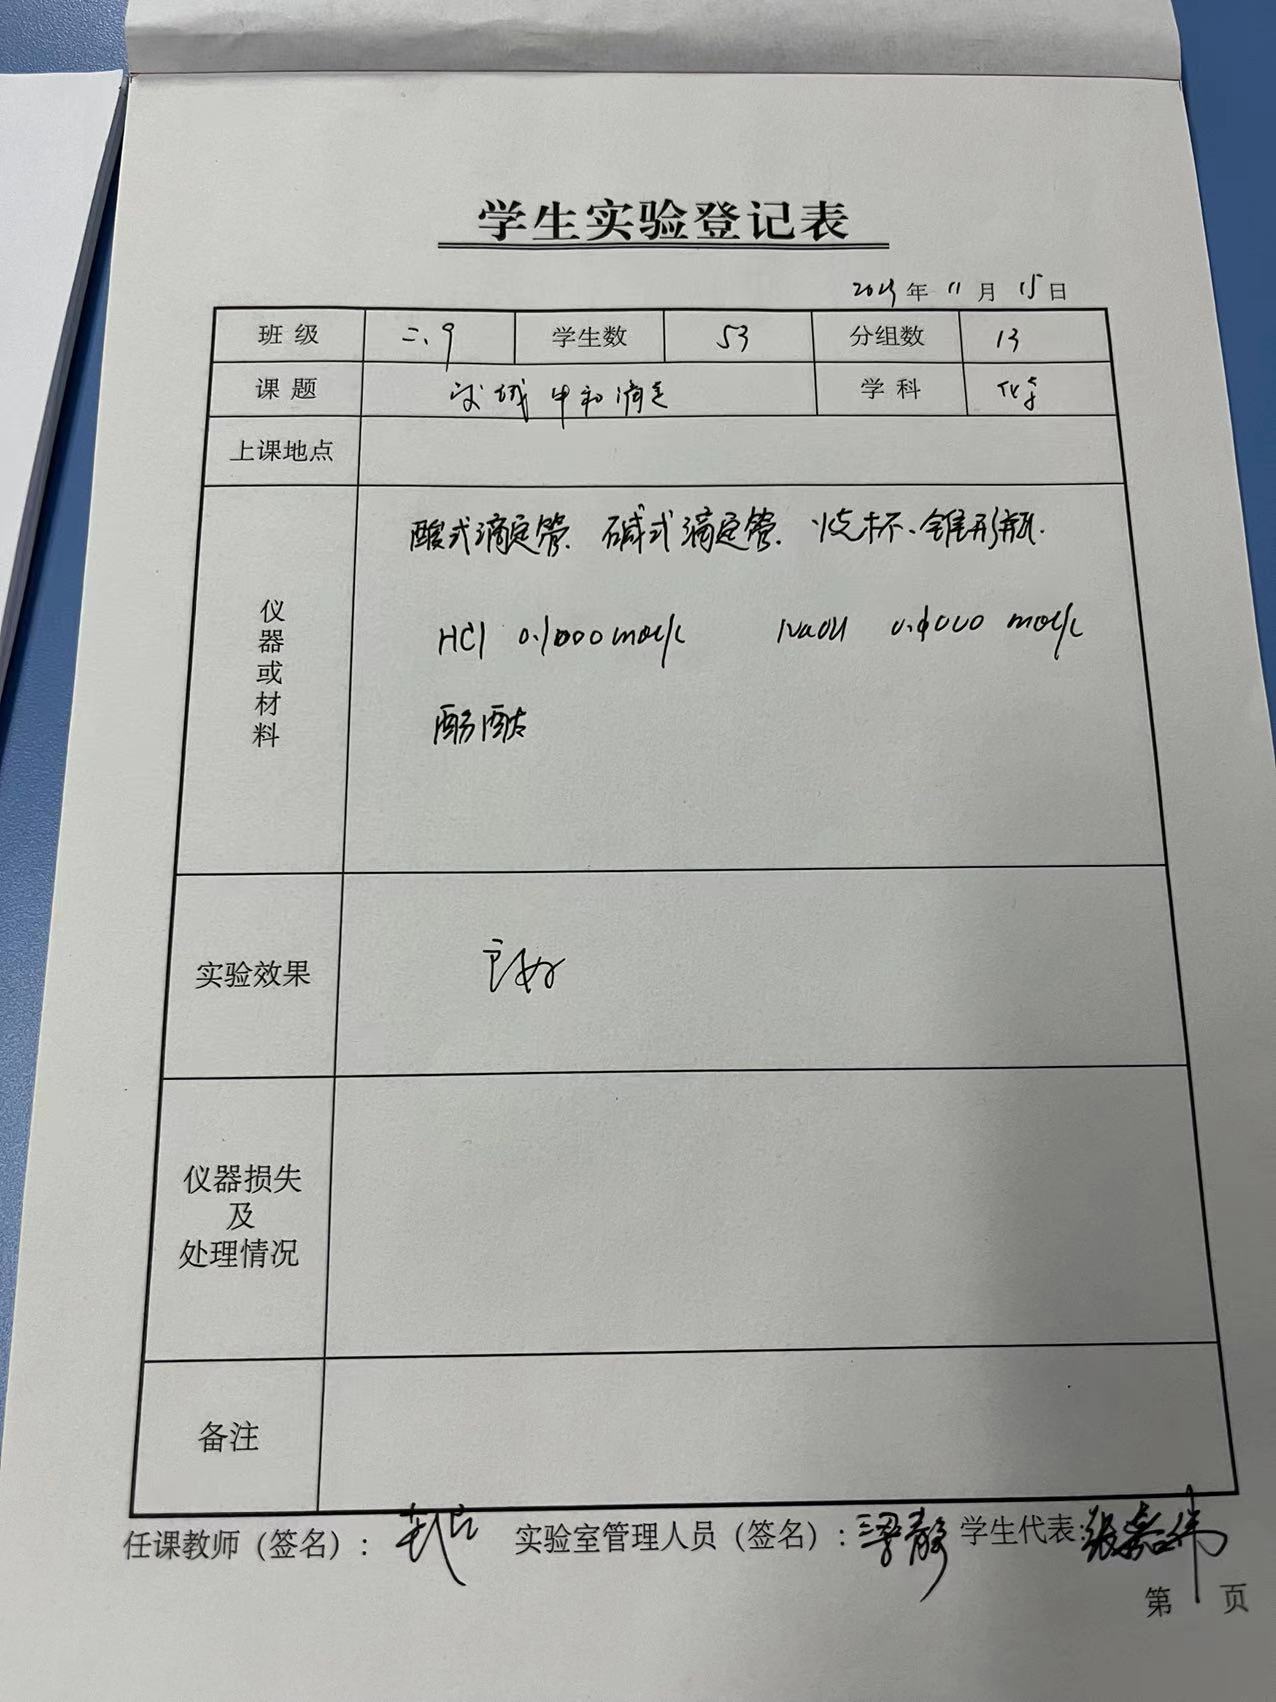 学生实验登记表
年 11 月 15 日
班 级 二、9 学生数 53 分组数 13
课 题 中和滴定 学 科 化学
上课地点
仪器或材料
酸式滴定管、碱式滴定管、烧杯、锥形瓶.
HCl 0.1000mol/L NaOH 0.1000 mol/L
酚酞
实验效果 良好
仪器损失
及
处理情况
备注
任课教师（签名）： 实验室管理人员（签名）：梁静 学生代表：张嘉伟
第 页